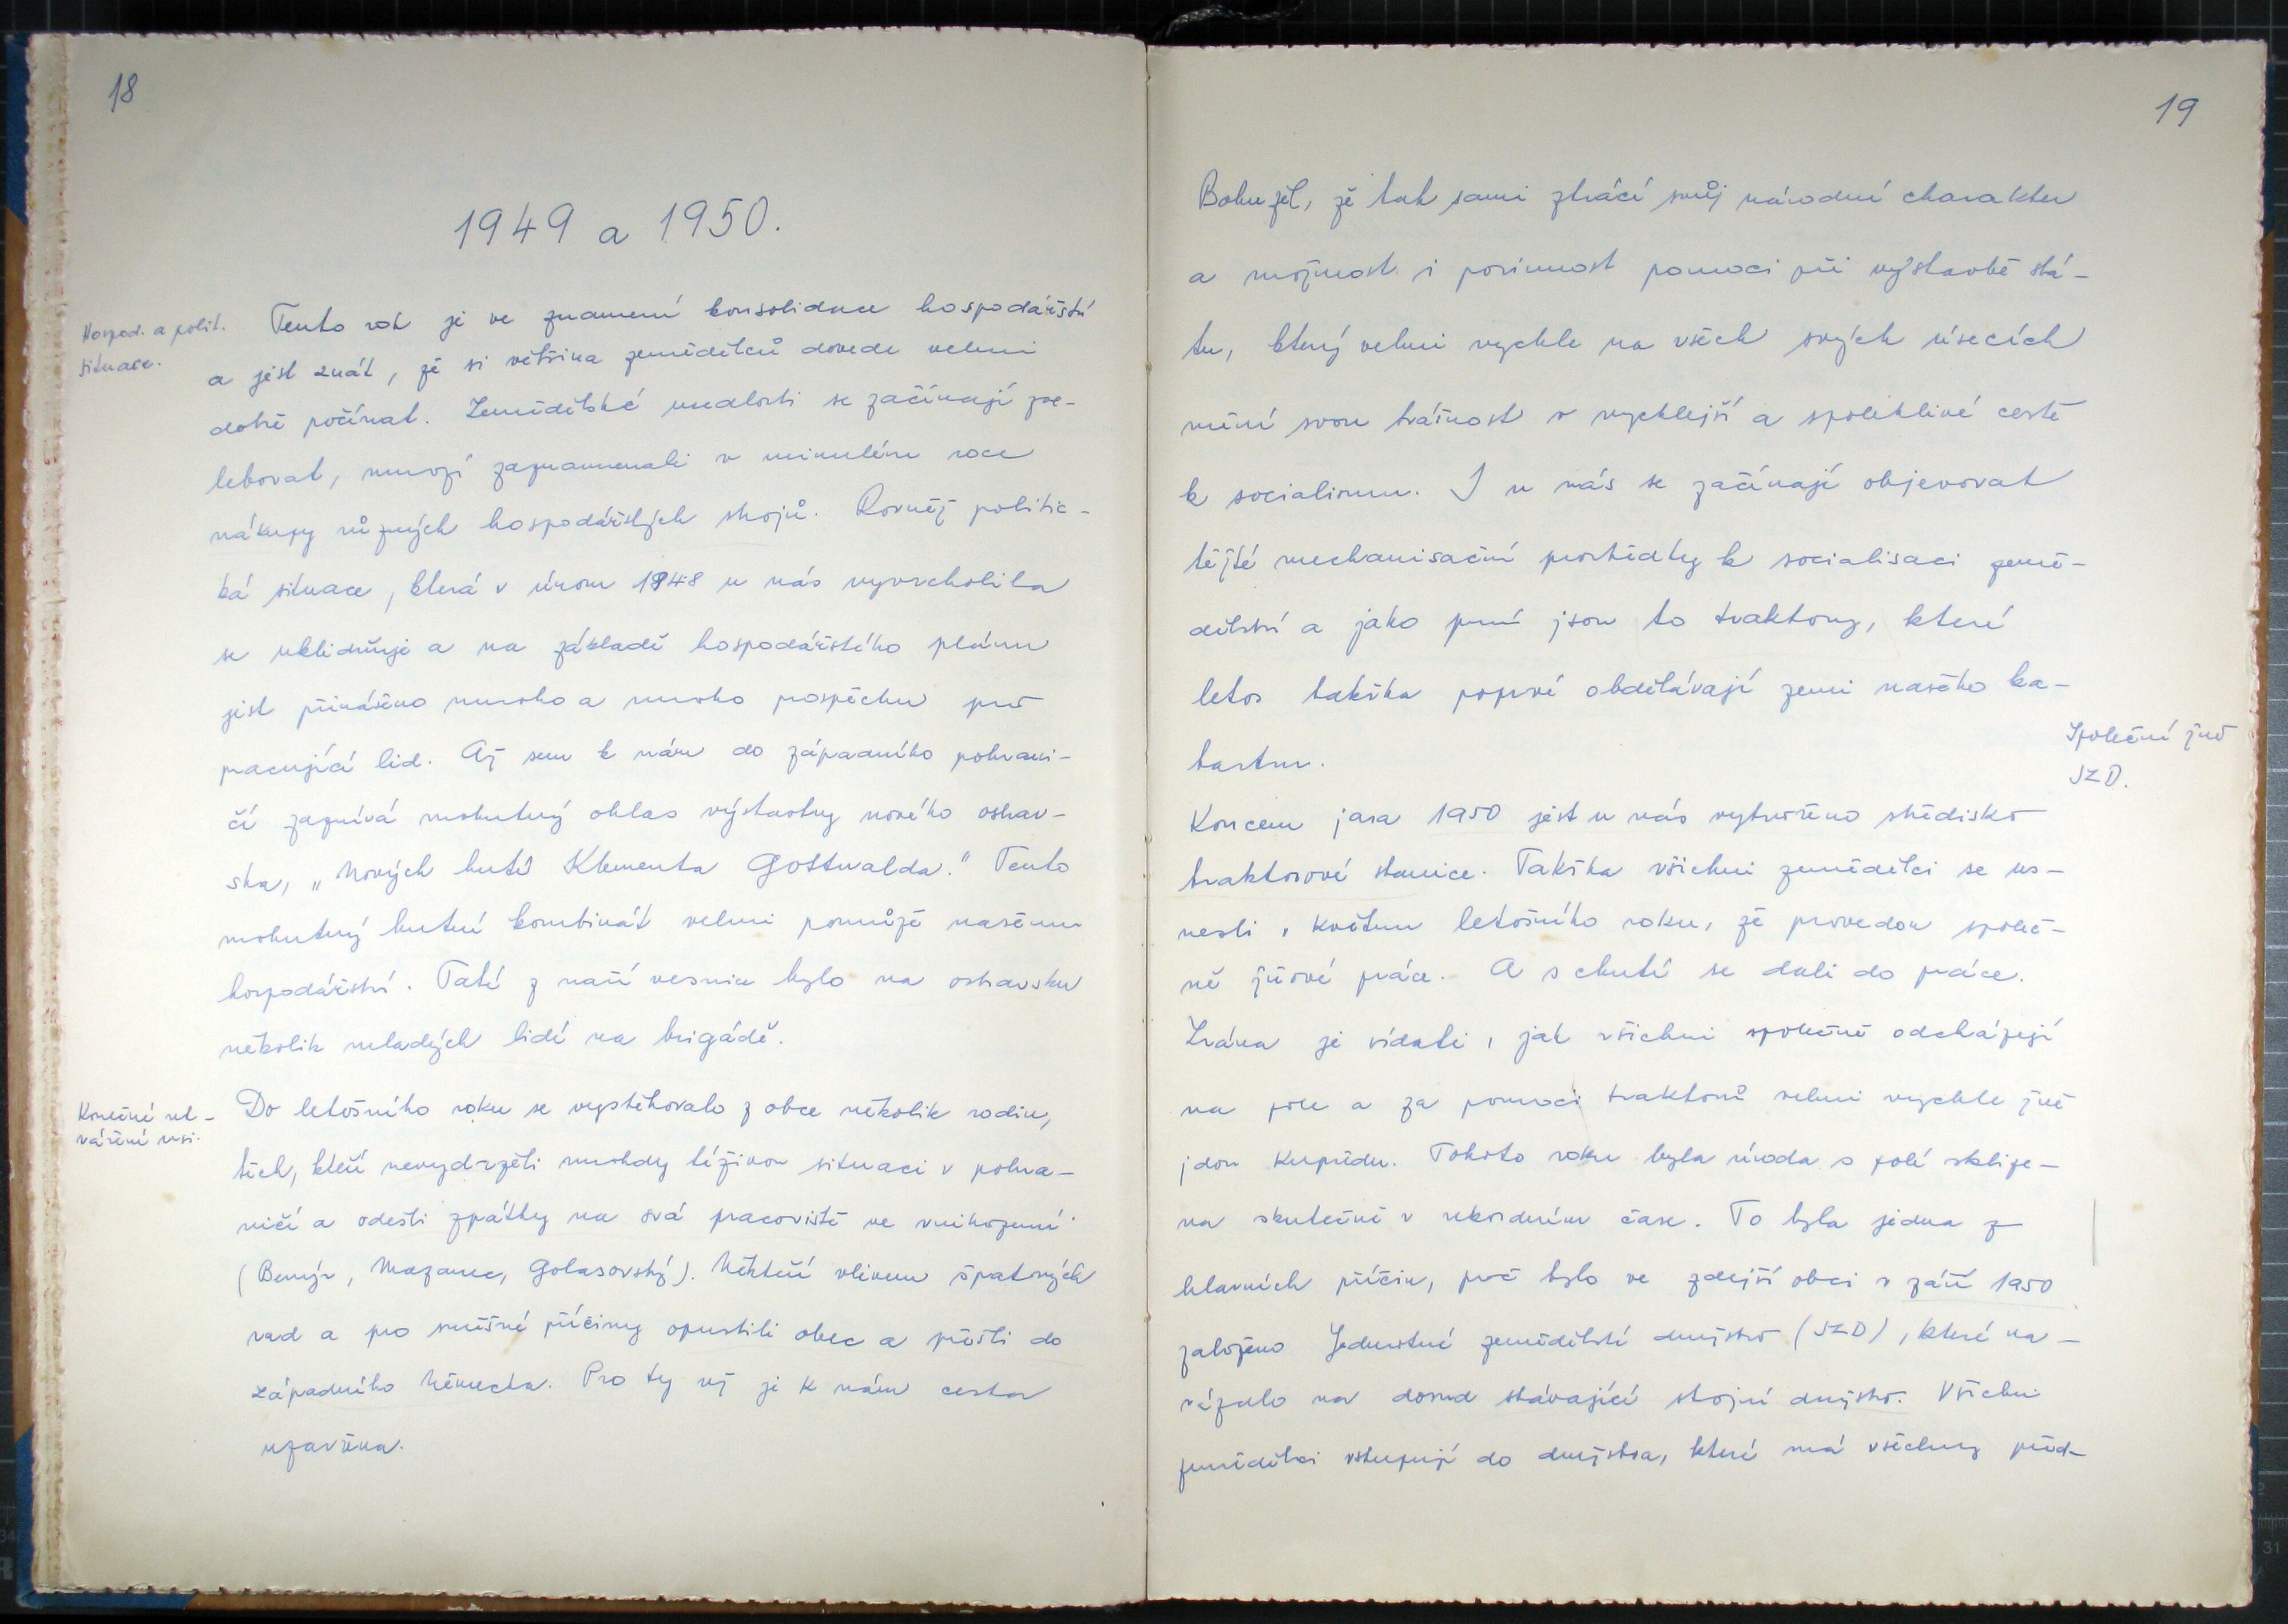 18
1949 a 1950.
Hospod. a polit.
situace.
Tento rok je ve znamení konsolidace hospodářství
a jest znát, že si většina zemědělců dovede velmi
dobře počínat. Zemědělské usedlosti se začínají zve-
lebovat, mnozí zaznamenali v minulém roce
nákupy různých hospodářských strojů. Rovněž politic-
ká situace, která v únoru 1948 u nás vyvrcholila
se uklidňuje a na základě hospodářského plánu
jest přinášeno mnoho a mnoho prospěchu pro
pracující lid. Až sem k nám do západního pohrani-
čí zaznívá mohutný ohlas výstavby nového ostrav-
ska, „Nových hutí Klementa Gottwalda." Tento
mohutný hutní kombinát velmi pomůže našemu
hospodářství. Také z naší vesnice bylo na ostravsku
několik mladých lidí na brigádě.
Konečné ut-
váření vsi.
Do letošního roku se vystěhovalo z obce několik rodin,
těch, kteří nevydrželi mnohdy tíživou situaci v pohra-
ničí a odešli zpátky na svá pracoviště ve vnitrozemí
(Benýr, Mazanec, Golasovský). Někteří vlivem špatných
rad a pro směšné příčiny opustili obec a přešli do
západního Německa. Pro ty už je k nám cesta
uzavřena.
19
Bohužel, že tak sami ztrácí svůj národní charakter
a možnost i povinnost pomoci při výstavbě stá-
tu, který velmi rychle na všech svých úsecích
mění svou tvářnost v rychlejší a spolehlivé cestě
k socialismu. I u nás se začínají objevovat
těžké mechanisační prostředky k socialisaci země-
dělství a jako první jsou to traktory, které
letos takřka poprvé obdělávají zemi našeho ka-
tastru.
Společné žně
JZD.
Koncem jara 1950 jest u nás vytvořeno středisko
traktorové stanice. Takřka všichni zemědělci se us-
nesli v květnu letošního roku, že provedou společ-
ně žňové práce. A s chutí se dali do práce.
Zrána je vídati, jak všichni společně odcházejí
na pole a za pomoci traktorů velmi rychle žně
jdou kupředu. Tohoto roku byla úroda s polí sklize-
na skutečně v rekordním čase. To byla jedna z
hlavních příčin, proč bylo ve zdejší obci v září 1950
založeno Jednotné zemědělské družstvo (JZD), které na-
vázalo na dosud stávající strojní družstvo. Všichni
zemědělci vstupují do družstva, které má všechny před-